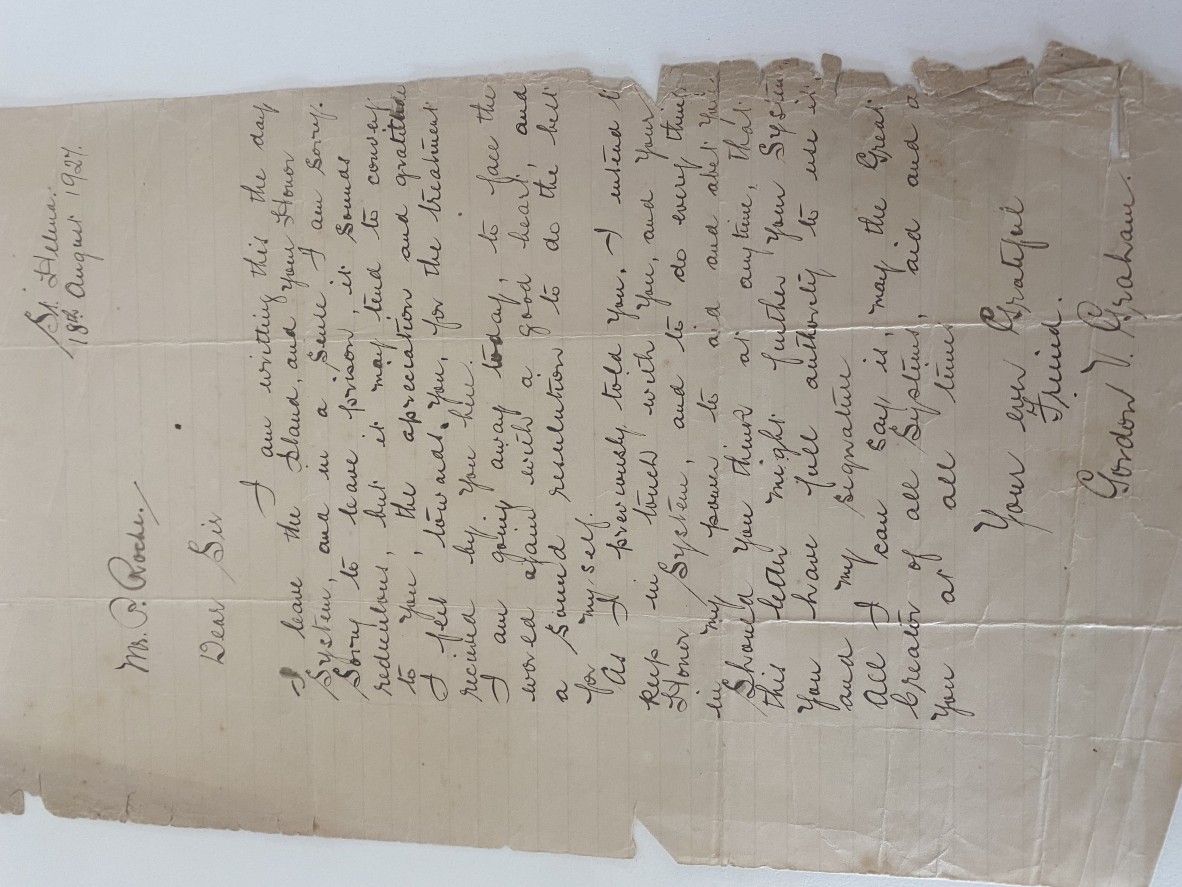 St Helena.
18th August 1927.
Mr. P. Roche.
Dear Sir
I am writting this the day
I leave the Island, and your Honor
System, and in a Sense I am sorry.
Sorry to leave prison, it sounds
rediculous, but it may tend to convey
to you, the apreciation and gratitude
I feel towards you, for the treatment
recieved by you here.
I am going away today, to face the
world again with a good heart, and
a sound resolution to do the best
for my self.
As I previously told you, I intend t
keep in touch with you, and your
Honor System, and to do every thing
in my power to aid and abet you
Should you think at anytime, that
this letter might further your System
you have full authority to use it
and my signature
All I can say is, may the Great
Creator of all Systems, aid and a
you at all times
Your ever Grateful
Friend.
Gordon V. Graham.